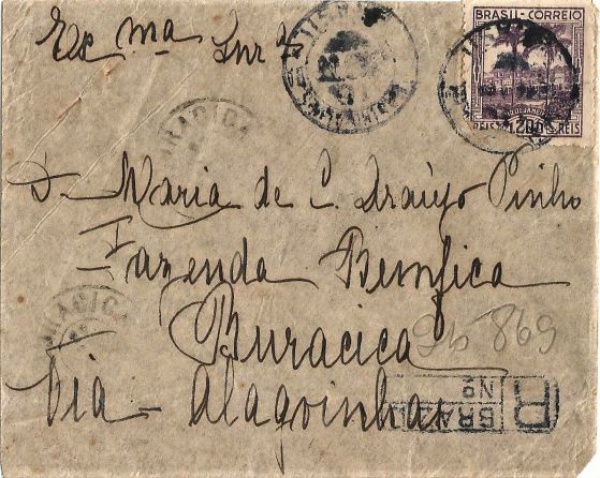 Exma Snra
BRASIL-CORREIO
RIO DE JANEIRO
REIS 1.200 REIS
D. Maria de C. Araújo Pinho
Fazenda Bemfica
Buracica
Via - Alagoinhas
869
R BRAZIL
Nº